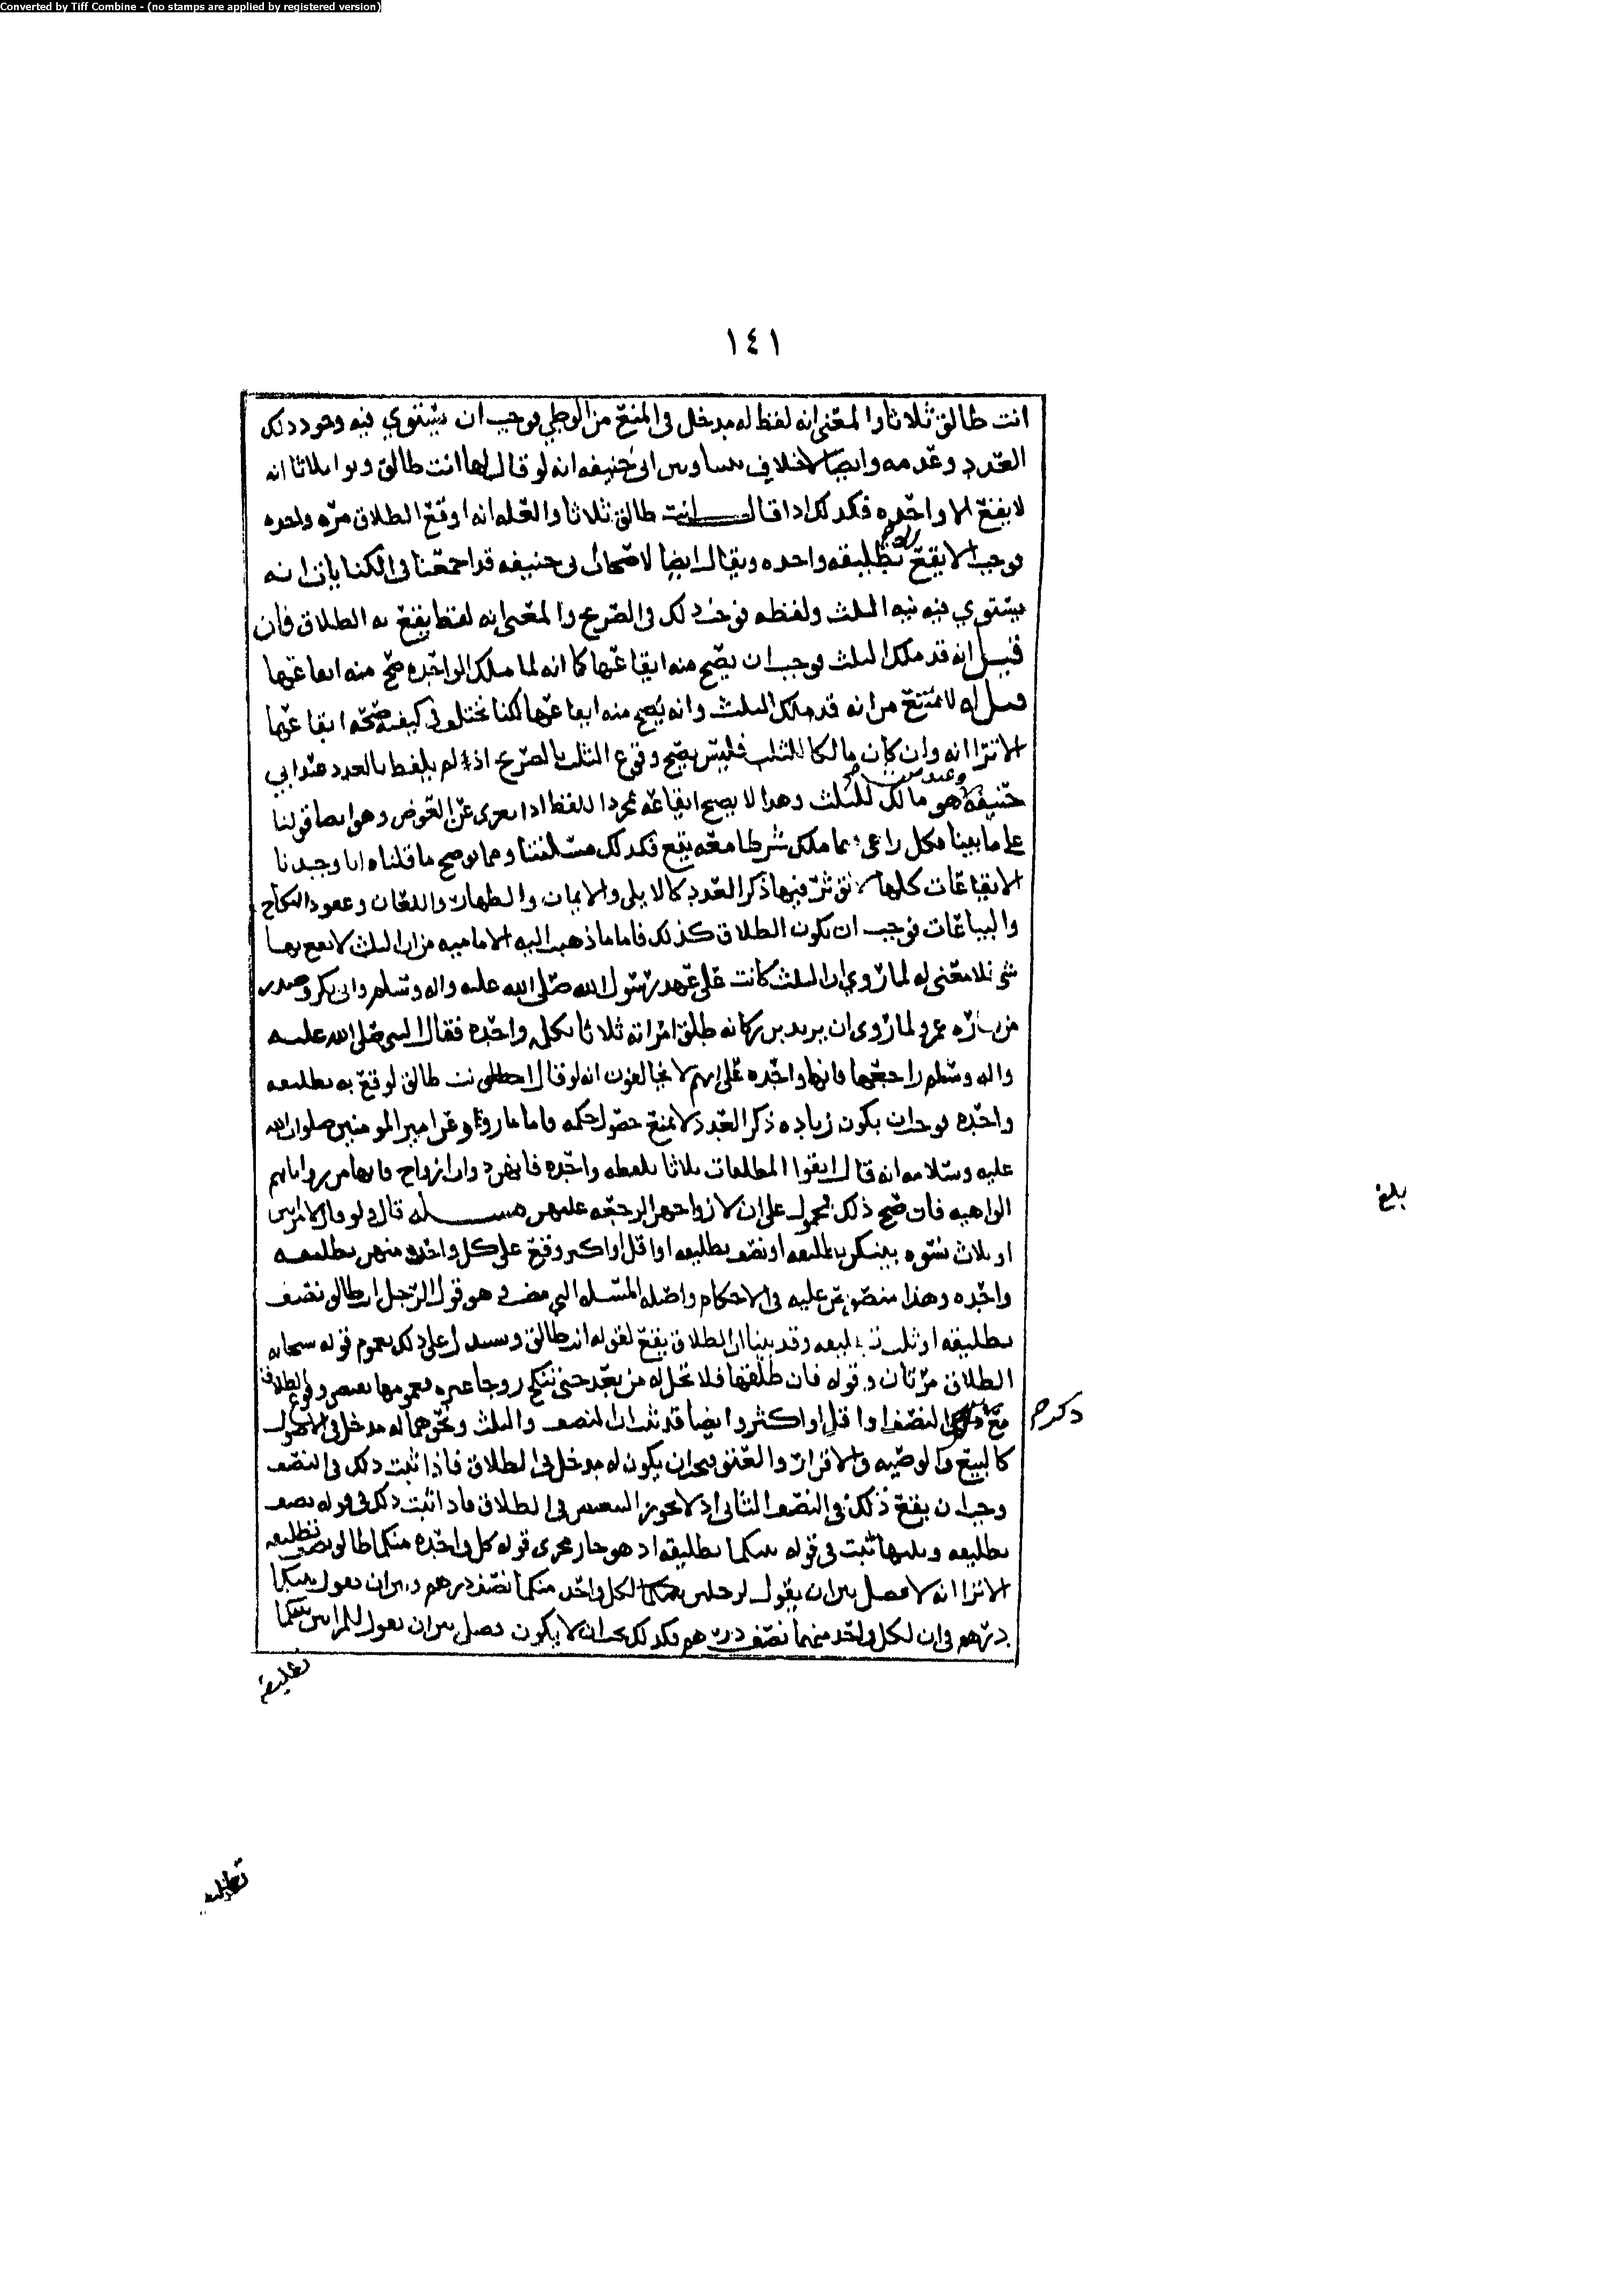 Converted by Tiff Combine - (no stamps are applied by registered version)
١٤١
انت طالق ثلاثا والمعنى انه لفظ له مدخل في المنع من الوطي فوجب ان يستوي فيه وجود ذلك
العدد وعدمه وايضا لا خلاف بيننا وبين ابي حنيفه انه لو قال لها انت طالق ونوا ثلاثا انه
لا يقع الا واحده فكذلك اذا قال انت طالق ثلاثا والعله انه اوقع الطلاق مره واحده
فوجب الا يقع تطليقه واحده ويقال ايضا لاصحاب ابي حنيفه قد اجمعنا في الكنايات انه
يستوي فيه نيه الثلث ولفظه فوجب ذلك في الصريح والمعنى انه لفظ يقع به الطلاق فان
قيل انه قد ملك الثلث فوجب ان يصح منه ايقاعها كما انه لما ملك الواحده صح منه ايقاعها
قيل له لا نمنع من انه قد ملك الثلث وانه يصح منه ايقاعها لكنا نختلف في كيفيه صحه ايقاعها
الا ترا انه وان كان مالكا للثلث فليس يصح وقوع الثلث بالصريح اذا لم يلفظ بالعدد عند ابي
حنيفه هو مالك للثلث وهذا لا يصح ايقاعه مجردا للفظ اذا تعرى عن العوض وهو ايضا قولنا
على ما بينا فكل راعى فيما ملك شرطا معه يقع فكذلك مسئلتنا ومما يوضح ما قلناه انا وجدنا
الايقاعات كلها لا تؤثر فيها ذكر العدد كالايلى والايمان والظهار واللعان وعقود النكاح
والبياعات فوجب ان يكون الطلاق كذلك فاما ما ذهب اليه الاماميه من ان الثلث لا يقع بها
شي فلا معنى له لما روي ان الثلث كانت على عهد رسول الله صلى الله عليه واله وسلم وابي بكر وصدر
من اماره عمر ولما روى ان يزيد بن ركانه طلق امراته ثلاثا بكلمه واحده فقال النبي صلى الله عليه
واله وسلم راجعها فانها واحده على انهم لا يخالفون انه لو قال انت طالق لوقع به تطليقه
واحده فوجب ان يكون زياده ذكر العدد لا تمنع حصول حكمه فاما ما رووا عن امير المومنين صلوات الله
عليه وسلامه انه قال اتقوا المطلقات ثلاثا بلفظه واحده فانهن ذوات ازواج فانها من رواياتهم
الواهيه فان صح ذلك فمحمول على ان لازواجهن الرجعه عليهن مسئله قال ولو قال لامراتين
او ثلاث نسوه بينكن تطليقه او نصف تطليقه او اقل او اكثر وقع على كل واحده منهن تطليقه
واحده وهذا منصوص عليه في الاحكام واصله المسئله التي مضت وهو قول الرجل انت طالق نصف
تطليقه او ثلث تطليقه وقد بينا ان الطلاق يقع لقوله انت طالق ويستدل على ذلك بعموم قوله سبحانه
الطلاق مرتان وقوله فان طلقها فلا تحل له من بعد حتى تنكح زوجا غيره فعمومها يقتضي وقوع الطلاق
مع النصف او اقل او اكثر وايضا قد ثبت ان النصف والثلث ونحوهما له مدخل في الاصول
كالبيع والوصيه والاقرار والعتق فيجب ان يكون له مدخل في الطلاق فاذا ثبت ذلك في النصف
وجب ان يقع ذلك في النصف الثاني اذ لا يجوز التبعيض في الطلاق فاذا ثبت ذلك في قوله نصف
تطليقه وثلثها ثبت في قوله بينكما تطليقه اذ هو جار مجرى قوله كل واحده منكما طالق نصف تطليقه
الا ترا انه لا فصل بين ان يقول لرجلين لكل واحد منكما نصف درهم وبين ان يقول بينكما
درهم في ان لكل واحد منهما نصف درهم فكذلك يجب ان لا يكون فصل بين ان يقول للمراتين بينكما
تطليقه
بلغ
ذكر م
تطليقه